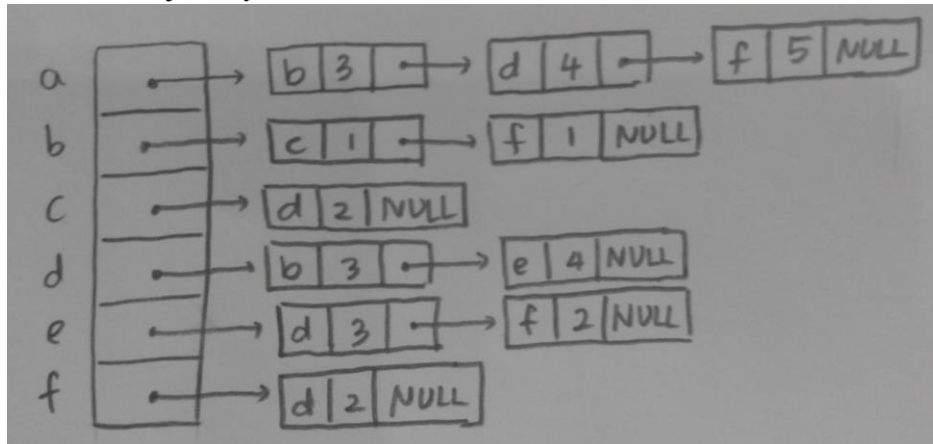 a b 3 d 4 f 5 NULL
b c 1 f 1 NULL
c d 2 NULL
d b 3 e 4 NULL
e d 3 f 2 NULL
f d 2 NULL